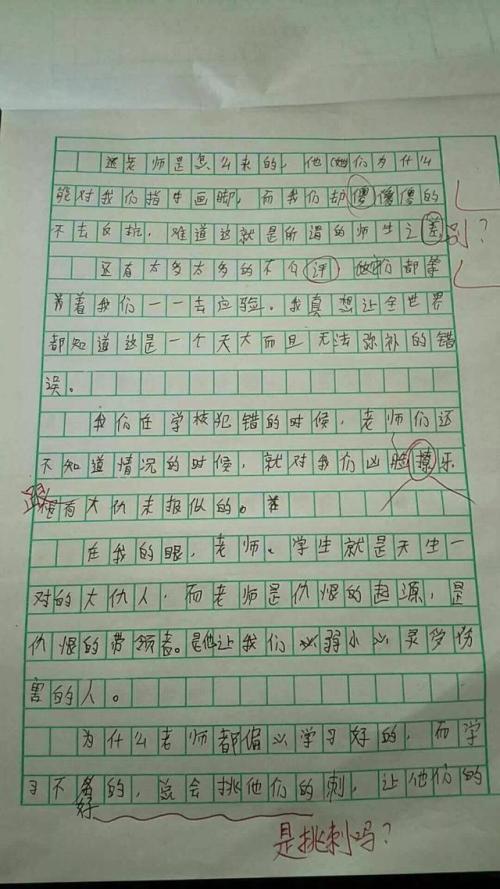 这老师是怎么来的，他(她)们为什么
能对我们指手画脚，而我们却傻傻傻的
不去反抗，难道这就是所谓的师生之差
别？
还有太多太多的不公评，他们都拿
着我们一一去应验。我真想让全世界
都知道这是一个天大而且无法弥补的错
误。
我们在学校犯错的时候，老师们还
不知道情况的时候，就对我们凶脸撩乐
跟有大仇未报似的。
在我的眼，老师、学生就是天生一
对的大仇人，而老师是仇恨的起源，是
仇恨的带领者。是他让我们弱小心灵受伤
害的人。
为什么老师都偏心学习好的，而学
习不好的，总会挑他们的刺，让他们的
是挑刺吗？